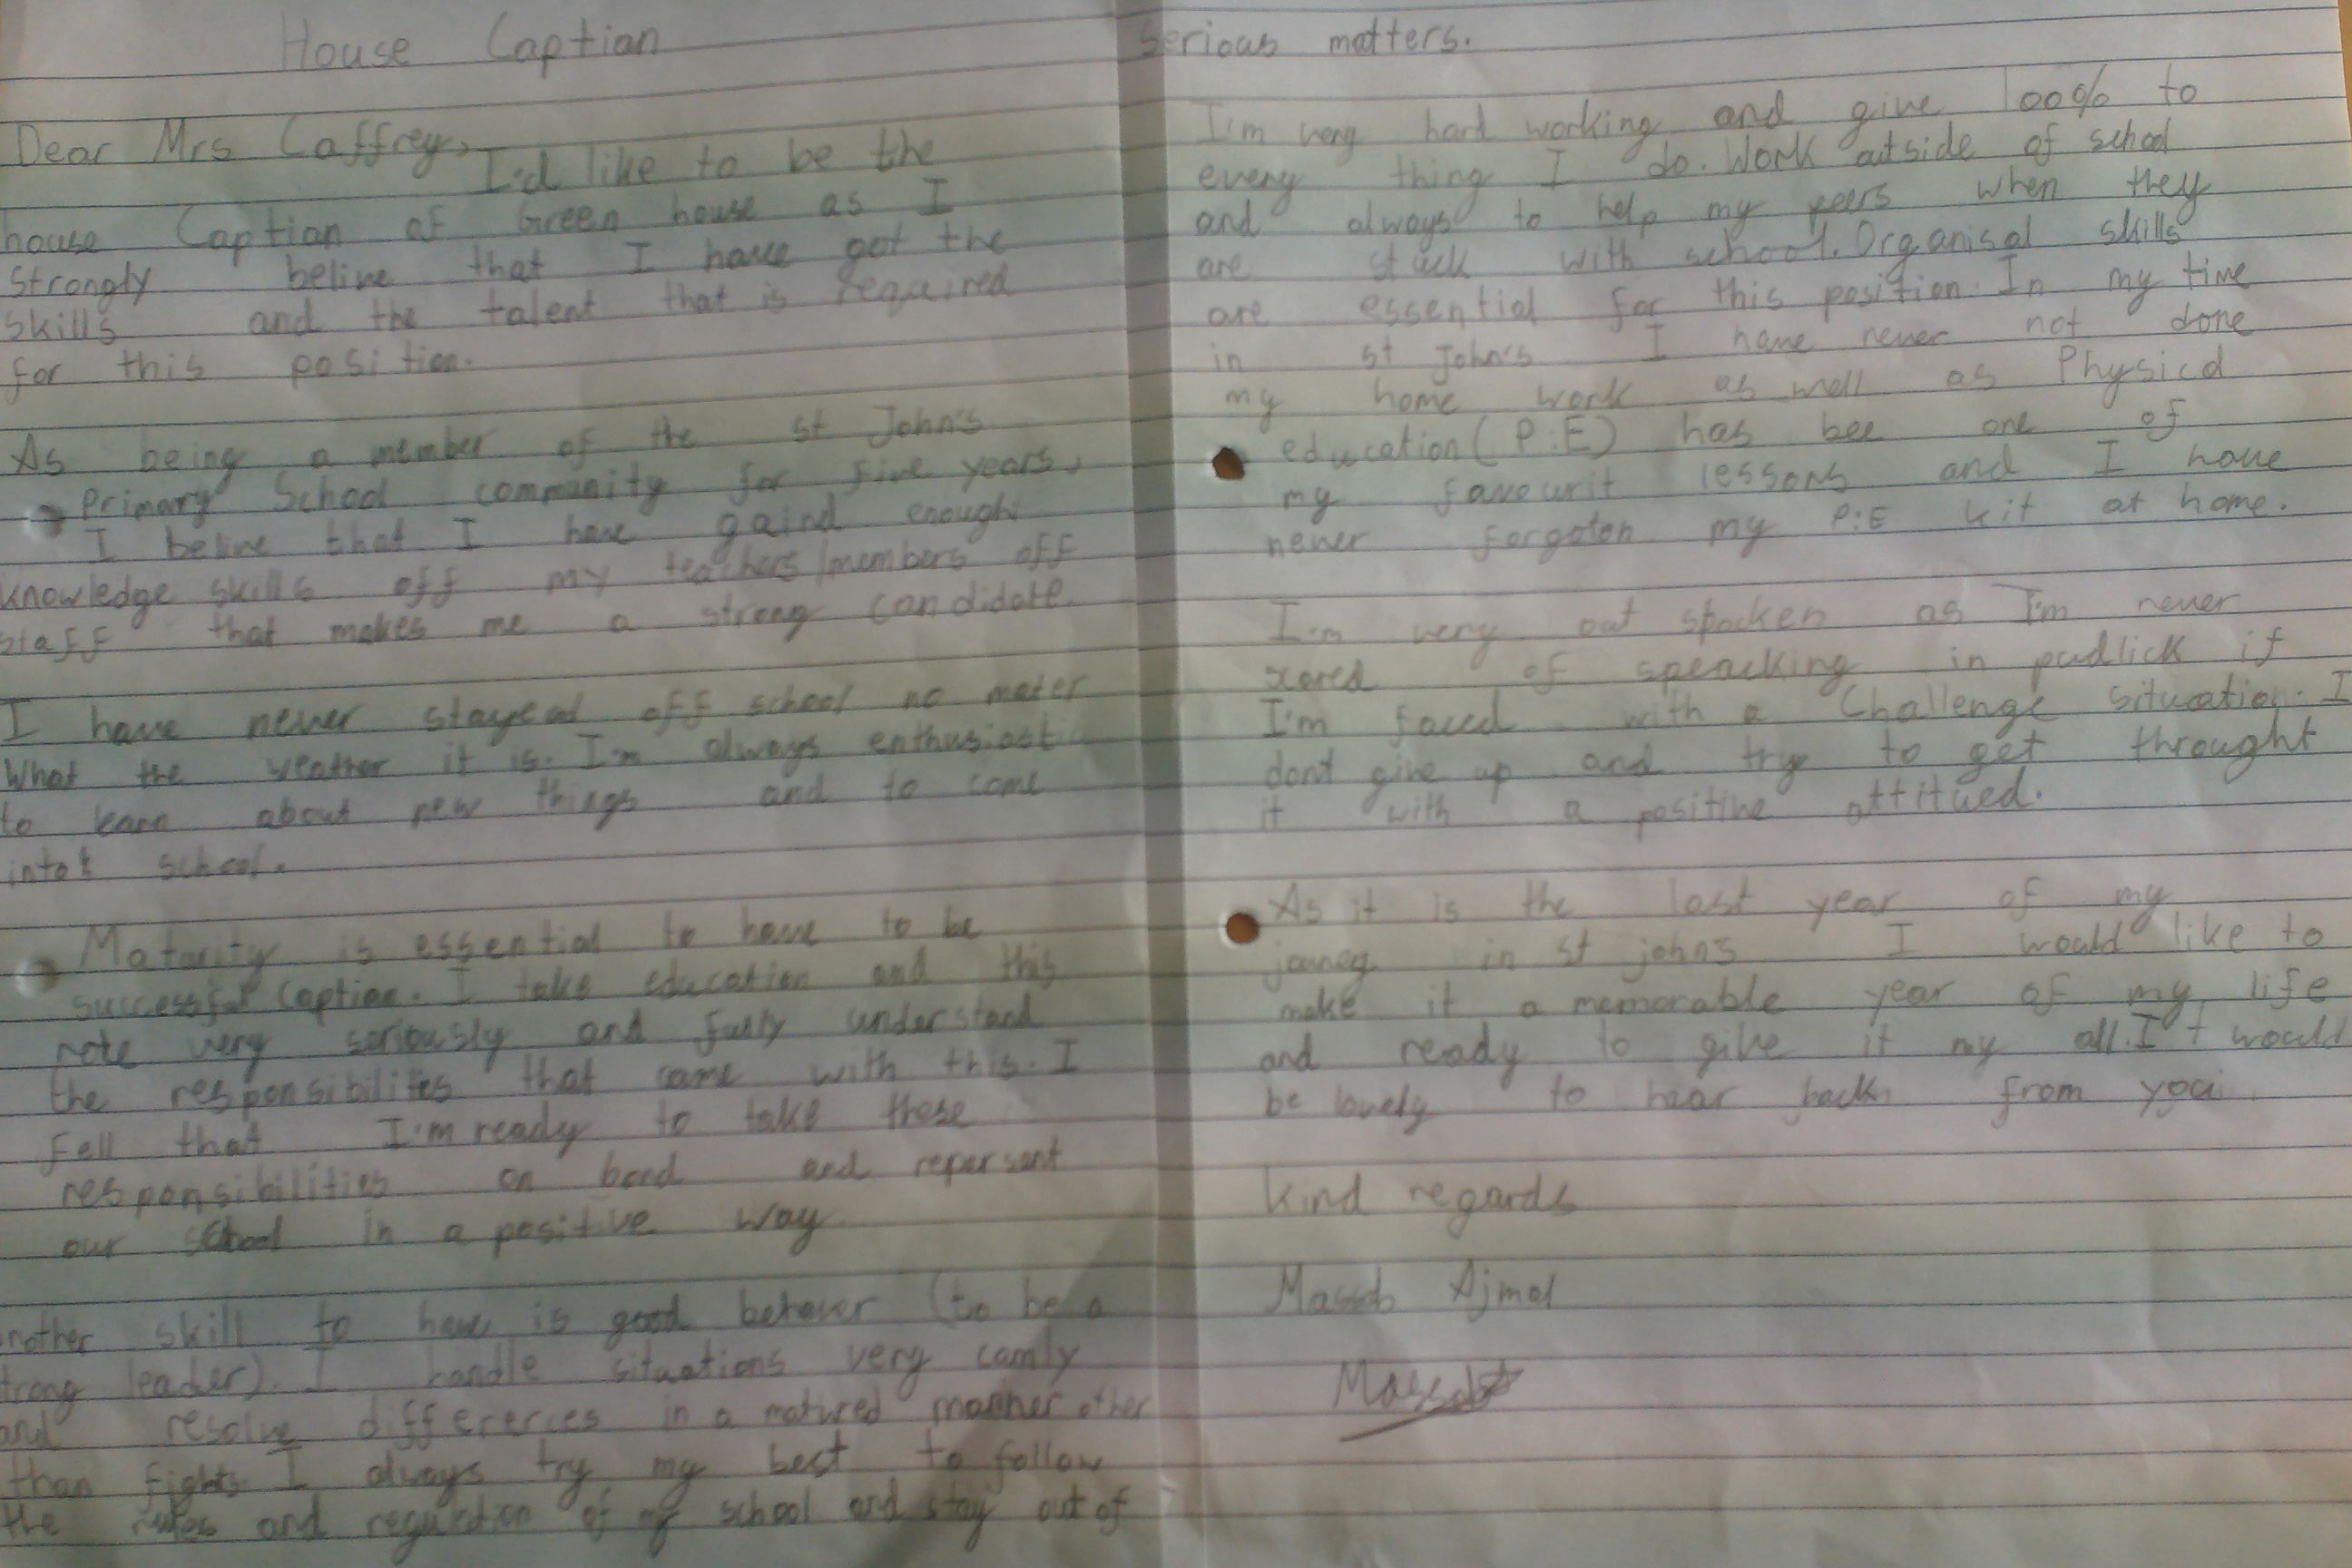 House Caption
Dear Mrs Caffrey,
I'd like to be the
house Caption of Green house as I
strongly belive that I have got the
skills and the talent that is required
for this position.
As being a member of the st John's
Primary School community for five years,
I belive that I have gaind enought
knowledge skills off my teachers/members off
staff that makes me a strong candidate.
I have never stayead off school no mater
What the weather it is. I'm always enthusiastic
to learn about new things and to come
into school.
Maturity is essential to have to be
successful Caption. I take education and this
role very seriously and fully understand
the responsibilities that came with this. I
fell that I'm ready to take these
responsibilities on bord and repersant
our school in a positive way
nother skill to have is good behaver (to be a
trong leader). I handle situations very camly
and resolve differences in a matured manner other
than fights I always try my best to follow
the rules and regulation of my school and stay out of
Serious matters.
I'm very hard working and give 100% to
every thing I do. Work outside of school
and always to help my peers when they
are stuck with school. Organisal skills
are essential for this position. In my time
in st John's I have never not done
my home work as well as Physicl
education (P:E) has bee one of
my favourit lessons and I have
never forgoten my P:E kit at home.
I'm very out spocken as I'm never
scared of speacking in pudlick if
I'm faced with a Challenge situation. I
don't give up and try to get throught
it with a positive attitued.
As it is the last year of my
journey in st john's I would like to
make it a memorable year of my life
and ready to give it my all. It would
be lovely to hear back from you.
kind regards
Ajmal